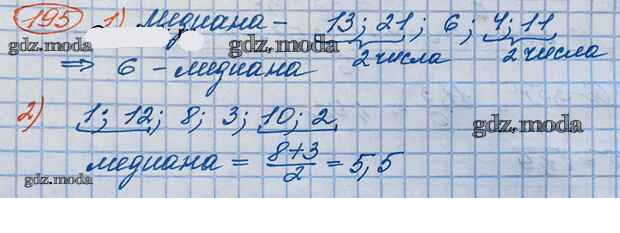 195 1) Медиана - 13; 21; 6; 4; 11
gdz.moda
gdz.moda
2 числа 2 числа
⇒ 6 - медиана
2) 1; 12; 8; 3; 10; 2
gdz.moda
медиана = (8+3)/2 = 5,5
gdz.moda